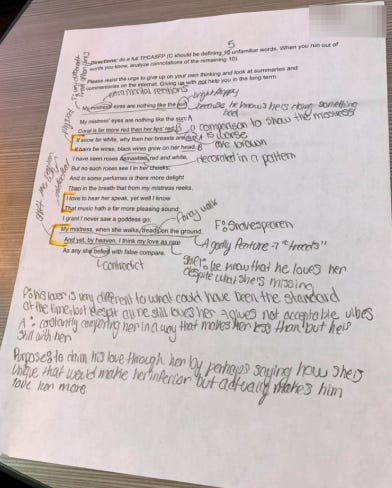 5
Directions: do a full TPCASFP (C should be defining 10 unfamiliar words. When you run out of
words you know, analyze connotations of the remaining 10).
Please resist the urge to give up on your own thinking and look at summaries and
commentaries on the internet. Giving up will not help you in the long term.
extra marital relations
bright/happy
My mistress' eyes are nothing like the sun
because he knows he's doing something
bad
My mistress' eyes are nothing like the sun; A
Coral is far more red than her lips' red; B
a comparison to show the mistress
is worse
If snow be white, why then her breasts are dun; A
are brown
If hairs be wires, black wires grow on her head. B
I have seen roses damasked, red and white,
decorated in a pattern
But no such roses see I in her cheeks;
And in some perfumes is there more delight
Than in the breath that from my mistress reeks.
I love to hear her speak, yet well I know
That music hath a far more pleasing sound;
I grant I never saw a goddess go;
fancy walk
My mistress, when she walks, treads on the ground.
F: Shakespearen
And yet, by heaven, I think my love as rare
As any she belied with false compare.
contradict
he know that he loves her
despite what she's missing
P: his lover is very different to what could have been the standard
at the time, but despite all he still loves her → gives not acceptable vibes
A: constantly comparing her in a way that makes her less than but he is
still with her
Purpose: to claim his love through her by perhaps saying how she's
unique that would make her inferior but actually makes him
love her more.